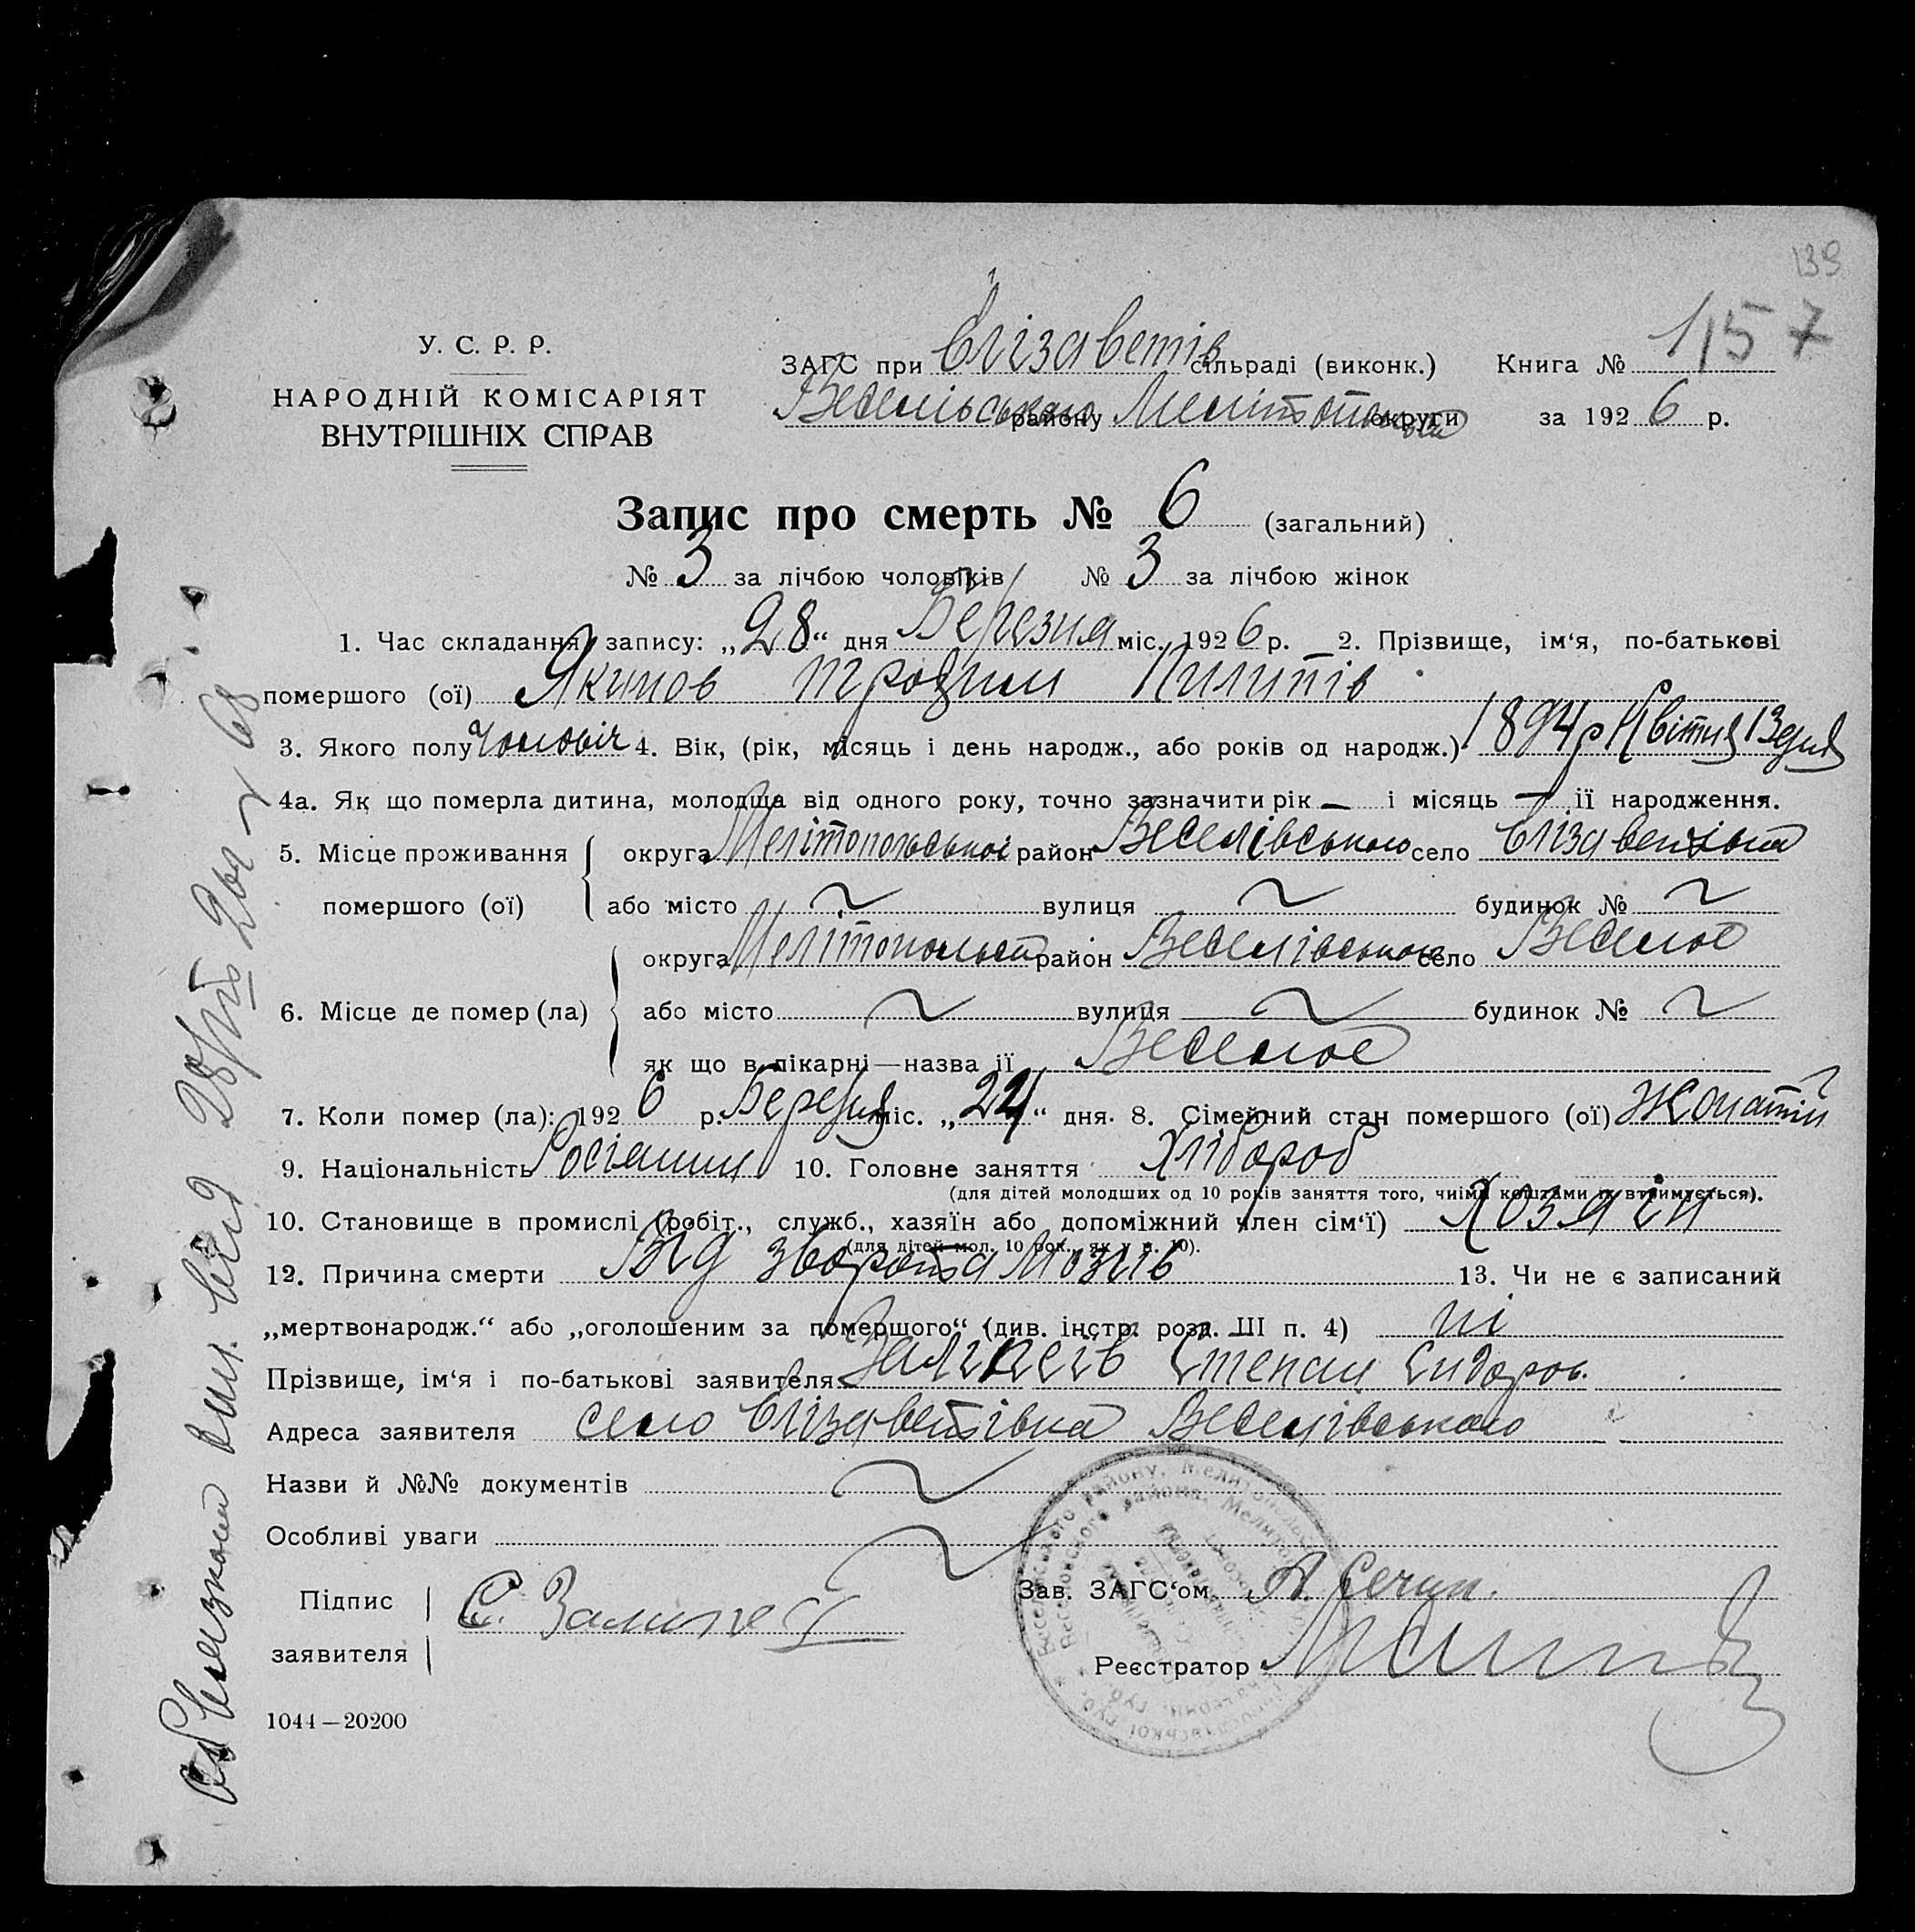 139
1157
У. С. Р. Р.
НАРОДНІЙ КОМІСАРІЯТ
ВНУТРІШНІХ СПРАВ
ЗАГС при Єлізаветів сільраді (виконк.) Книга №
району Мелітопольськ округи за 192 6 р.
Запис про смерть № 6 (загальний)
№ 3 за лічбою чоловіків № 3 за лічбою жінок
1. Час складання запису: „28“ дня Березня міс. 1926 р. 2. Прізвище, ім‘я, по-батькові
помершого (ої) Якимов Трофим Пилипів
3. Якого полу чоловіч 4. Вік, (рік, місяць і день народж., або років од народж.) 1894 р Квітня 13 дня
4а. Як що померла дитина, молодща від одного року, точно зазначити рік — і місяць — її народження.
5. Місце проживання помершого (ої) округа Мелітопольської район Веселівського село Єлізаветівка
або місто вулиця будинок №
6. Місце де помер (ла) округа район Веселівського село Веселое
або місто вулиця будинок №
як що в лікарні—назва її Веселое
7. Коли помер (ла): 1926 р. Березня міс. „24“ дня. 8. Сімейний стан помершого (ої) Жонатій
9. Національність Росіянин 10. Головне заняття Хлібороб
(для дітей молодших од 10 років заняття того, чиїми коштами їх втримується).
10. Становище в промислі (робіт., служб., хазяїн або допоміжний член сім‘ї) Хозяін
(для дітей мол. 10 рок., як у п. 10).
12. Причина смерти Від зворота Мозгів 13. Чи не є записаний
„мертвонародж.“ або „оголошеним за помершого“ (див. інстр. розд. III п. 4) ні
Прізвище, ім‘я і по-батькові заявителя Степан Сидоров.
Адреса заявителя село Єлізаветівка Веселівського
Назви й №№ документів
Особливі уваги
Підпис заявителя С.
Зав. ЗАГС‘ом
Реєстратор
1044—20200